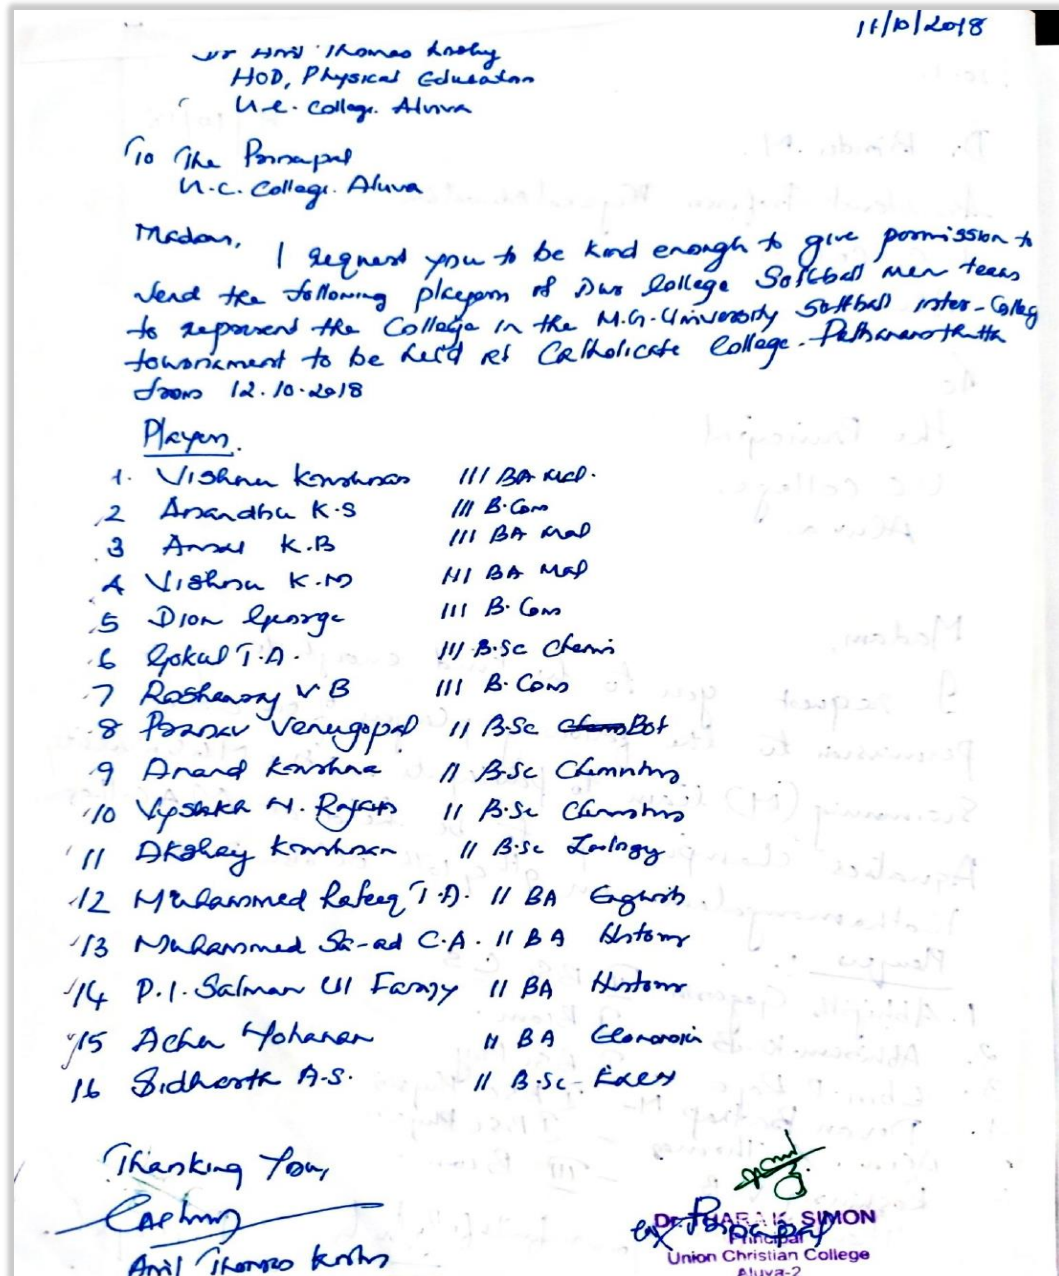 11/10/2018
Dr Anil Thomas Koshy
HOD, Physical Education
U.C. College. Aluva
To The Principal
U.C. College. Aluva
Madam,
I request you to be kind enough to give permission to
send the following players of our College Softball men team
to represent the College in the M.G. University Softball inter-College
tournament to be held at Catholicate College. Pathanamthitta
from 12.10.2018
Players.
1. Vishnu Krishnan III BA Mal.
2 Anandhu K.S III B.Com
3 K.B III BA Mal
4 Vishnu K.M III BA Mal
5 Dion George III B.Com
6 Gokul T.A. III B.Sc Chemis
7 V B III B.Com
8 Pranav Venugopal II B.Sc Bot
9 Anand Krishna II B.Sc Chemistry
10 Vysakh N. II B.Sc Chemistry
11 Akshay Krishnan II B.Sc Zoology
12 Muhammed Rafeeq T.A. II BA English
13 Muhammed Sa-ad C.A. II BA History
14 P.I. Salman Ul Farisy II BA History
15 Mohanan II BA Economics
16 Sidharth A.S. II B.Sc-
Thanking You,
Anil Thomas Koshy
Principal
SIMON
Principal
Union Christian College
Aluva-2